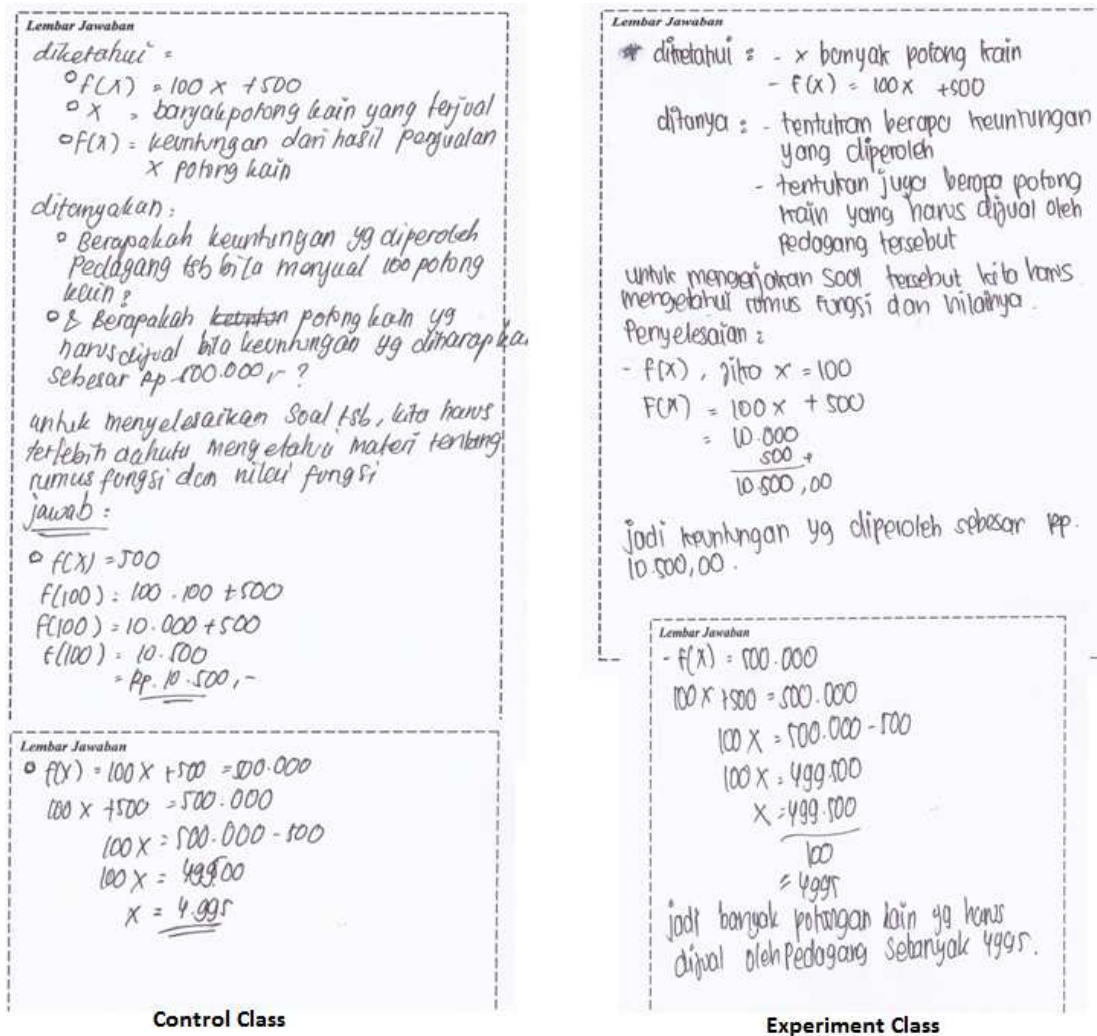 Lembar Jawaban
diketahui =
° f(x) = 100 x + 500
° x = banyak potong kain yang terjual
° f(x) = keuntungan dari hasil penjualan
x potong kain
ditanyakan :
° Berapakah keuntungan yg diperoleh
Pedagang tsb bila menjual 100 potong
kain ?
° Berapakah potong kain yg
harus dijual bila keuntungan yg diharapkan
sebesar Rp 500.000,- ?
untuk menyelesaikan soal tsb, kita harus
terlebih dahulu mengetahui materi tentang
rumus fungsi dan nilai fungsi
jawab :
° f(x) = 500
f(100) = 100 . 100 + 500
f(100) = 10.000 + 500
f(100) = 10.500
= Rp. 10.500,-
Lembar Jawaban
° f(x) = 100 x + 500 = 500.000
100 x + 500 = 500.000
100 x = 500.000 - 500
100 x =
x = 4.995
Control Class
Lembar Jawaban
* diketahui : - x banyak potong kain
- f(x) = 100x + 500
ditanya : - tentukan berapa keuntungan
yang diperoleh
- tentukan juga berapa potong
kain yang harus dijual oleh
Pedagang tersebut
untuk mengerjakan soal tersebut kita harus
mengetahui rumus fungsi dan nilainya.
Penyelesaian :
- f(x), jika x = 100
F(x) = 100x + 500
= 10.000
500 +
10.500,00
jadi keuntungan yg diperoleh sebesar Rp.
10.500,00.
Lembar Jawaban
- f(x) = 500.000
100 x + 500 = 500.000
100 x = 500.000 - 500
100 x = 499.500
x = 499.500
100
= 4995
jadi banyak potongan kain yg harus
dijual oleh Pedagang sebanyak 4995.
Experiment Class